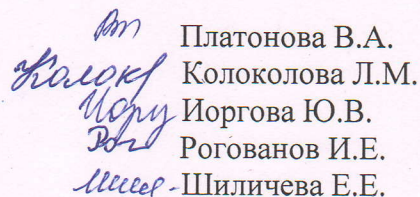 Платонова В.А.
Колоколова Л.М.
Иоргова Ю.В.
Рогованов И.Е.
Шиличева Е.Е.